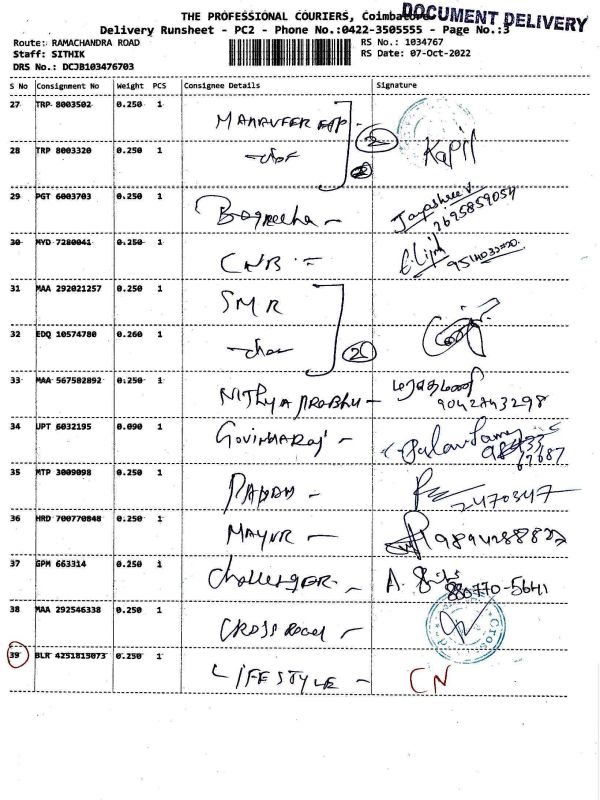 THE PROFESSIONAL COURIERS, Coimbatore
DOCUMENT DELIVERY
Delivery Runsheet - PC2 - Phone No.:0422-3505555 - Page No.:3
Route: RAMACHANDRA ROAD
RS No.: 1034767
Staff: SITHIK
RS Date: 07-Oct-2022
DRS No.: DCJB103476703
S No Consignment No Weight PCS Consignee Details Signature
27 TRP 8003502 0.250 1
28 TRP 8003320 0.250 1 Kapil
29 PGT 6003703 0.250 1 Jayashree V
7695859054
30 MYD 7280041 0.250 1 CNB
31 MAA 292021257 0.250 1 SMR
32 EDQ 10574780 0.260 1
33 MAA 567502892 0.250 1 Nithya Prabhu - 9042743298
34 UPT 6032195 0.090 1 Govindaraj -
35 MTP 3009098 0.250 1 2470347
36 HRD 700770848 0.250 1 MAYUR -
37 GPM 663314 0.250 1 Challenger - 880770-5641
38 MAA 292546338 0.250 1 CROSS Road
39 BLR 4251815073 0.250 1 LIFESTYLE - CN